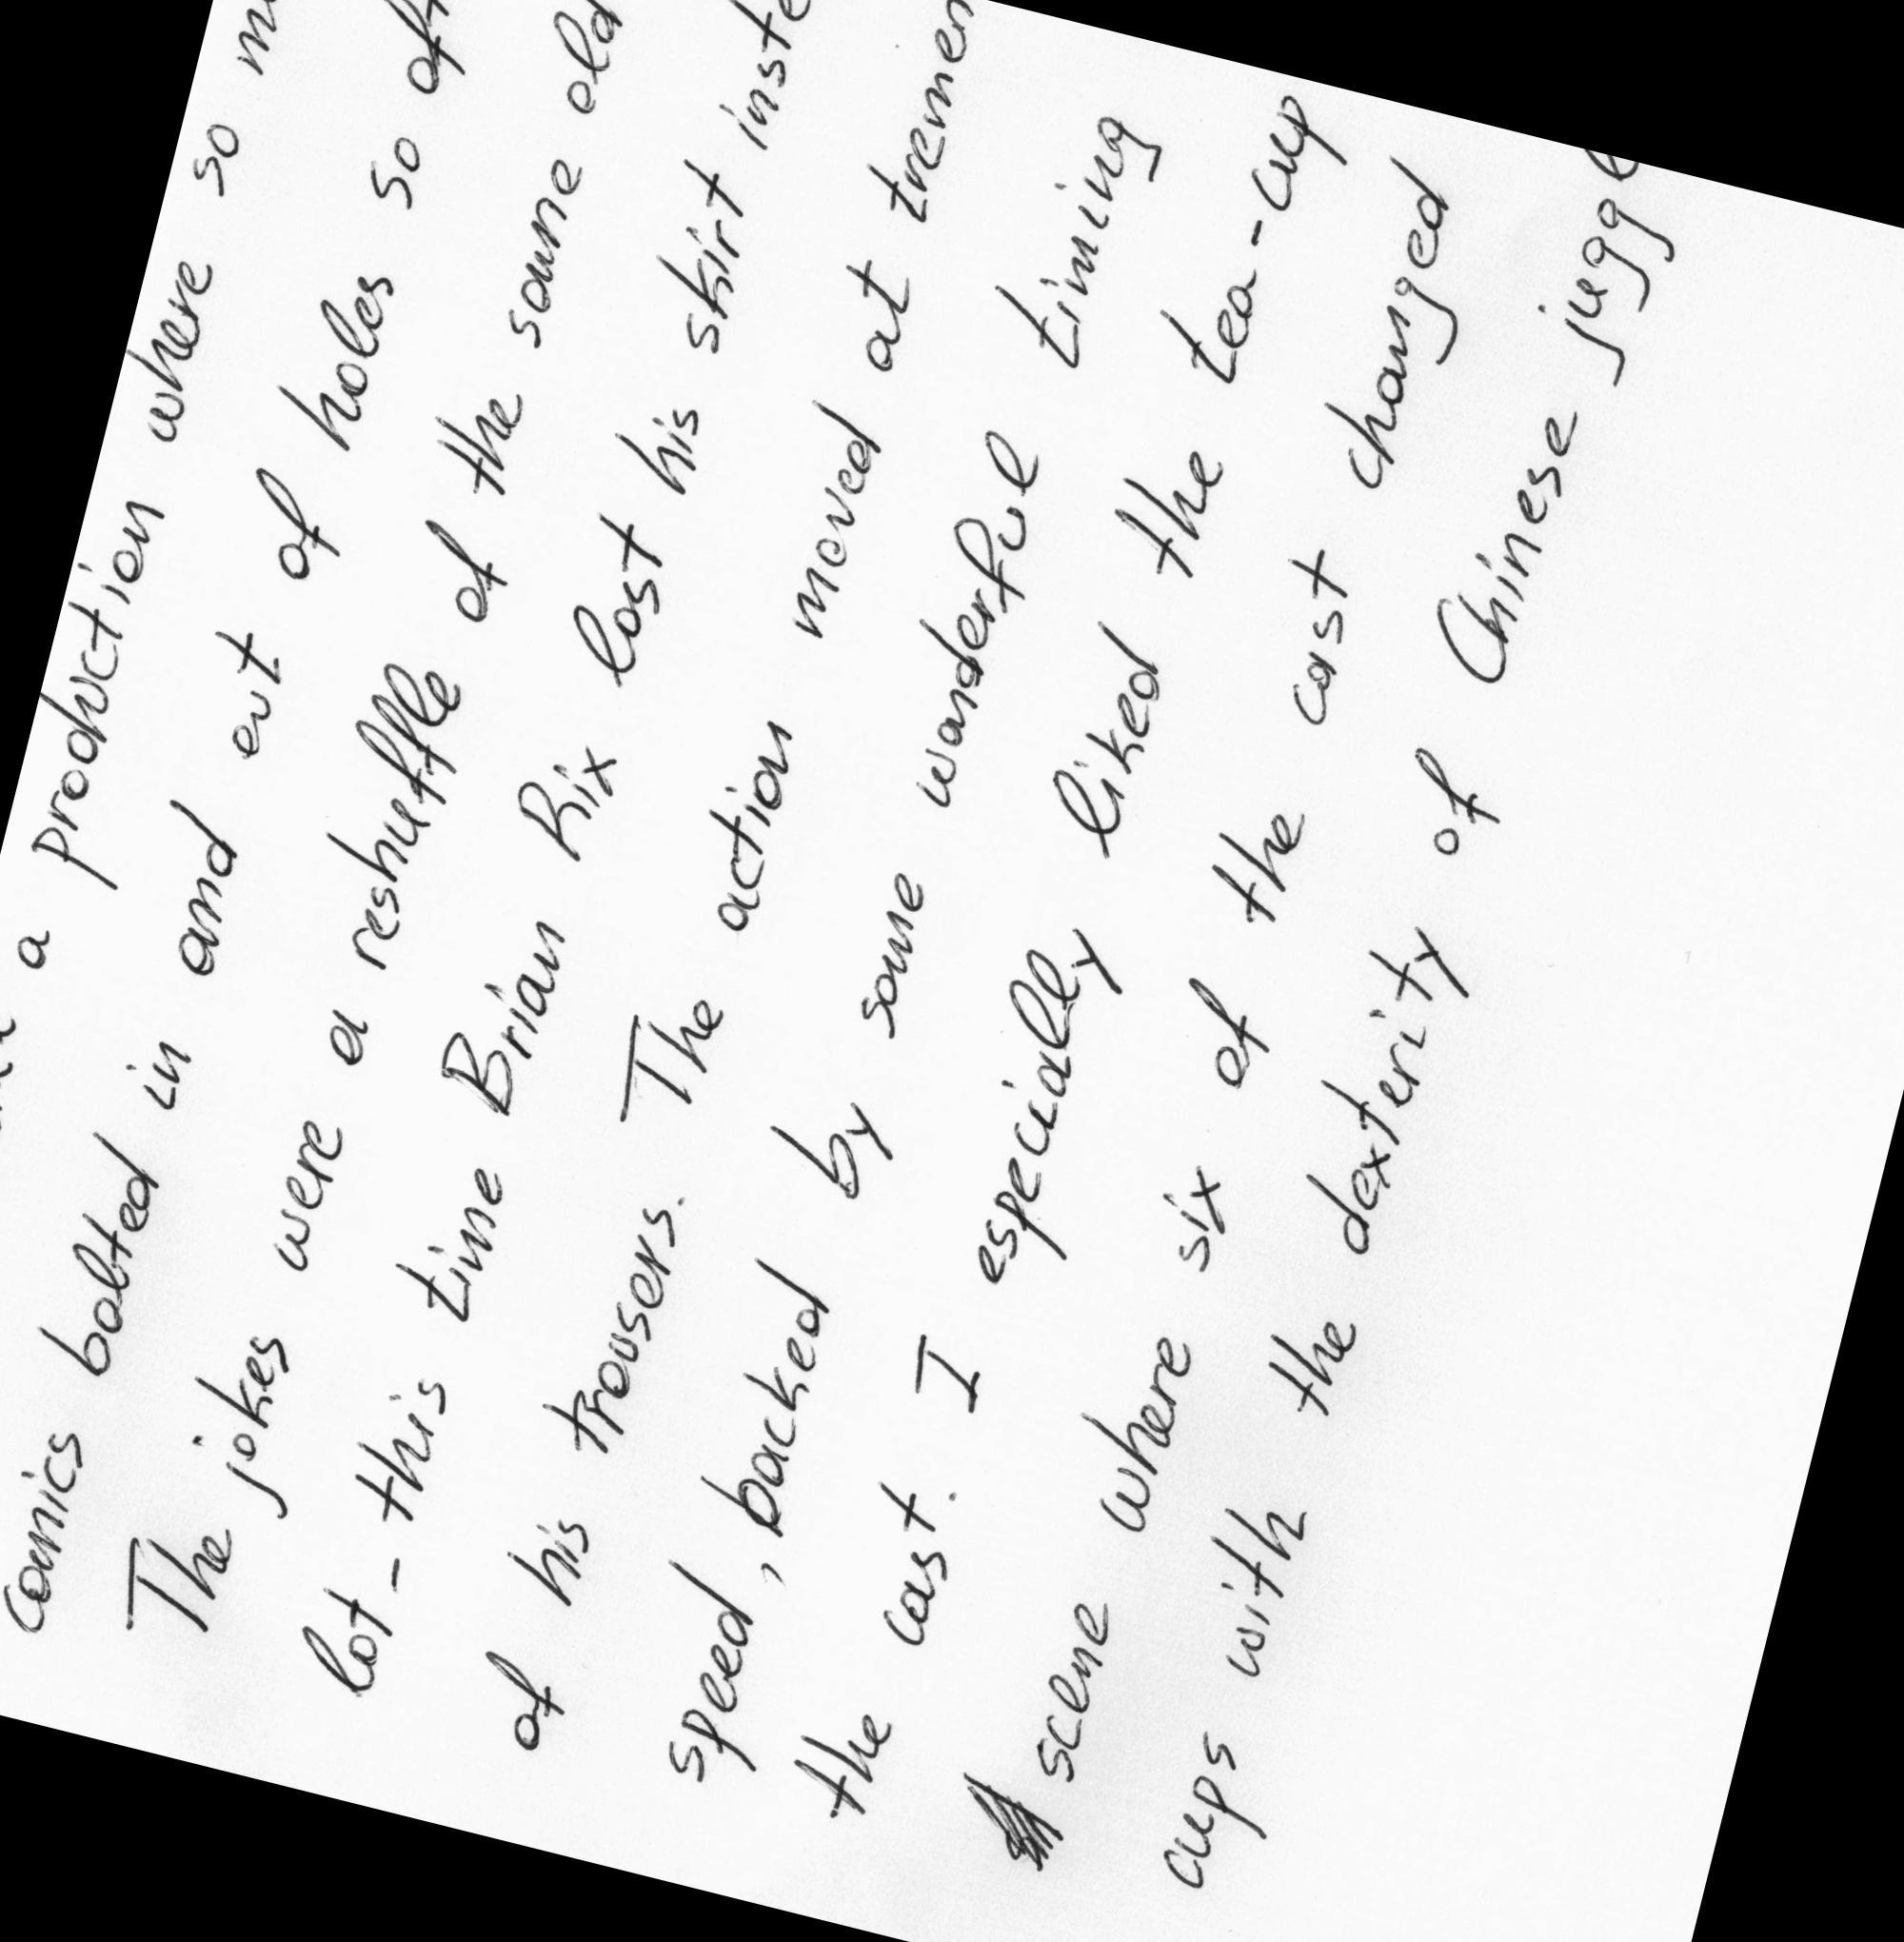 a production where so
comics bolted in and out of holes so
The jokes were a reshuffle of the same old
lot - this time Brian Rix lost his skirt
of his trousers. The action moved at
speed, backed by some wonderful timing
the cast. I especially liked the tea-cup
scene where six of the cast changed
cups with the dexterity of Chinese